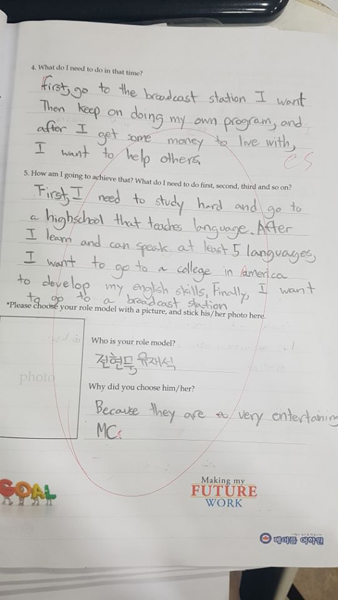 4. What do I need to do in that time?
First, go to the broadcast station I want
Then keep on doing my own program, and
after I get some money to live with,
I want to help others,
es
5. How am I going to achieve that? What do I need to do first, second, third and so on?
First, I need to study hard and go to
a highschool that teaches language. After
I learn and can speak at least 5 languages,
I want to go to a college in America
to develop my english skills, Finally, I want
to go to a broadcast station
*Please choose your role model with a picture, and stick his/her photo here.
Who is your role model?
전현무, 유재석
photo
Why did you choose him/her?
Because they are a very entertaining
MCs
GOAL
Making my
FUTURE
WORK